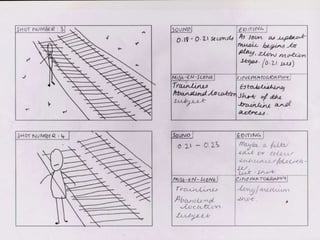 SHOT NUMBER: 3
SOUND
0.18 - 0.21 seconds
EDITING
As soon as upbeat
music begins to
play, slow motion
stops. (0.21 secs)
MISE-EN-SCENE
Trainlines
Abandend location
subject
CINEMATOGRAPHY
Establishing
shot of the
trainline and
actress.
SHOT NUMBER: 4
SOUND
0.21 - 0.23
EDITING
Maybe a filter
edit or colour
shot
MISE-EN-SCENE
Trainlines
Abandend
location
subject
CINEMATOGRAPHY
long/medium
shot